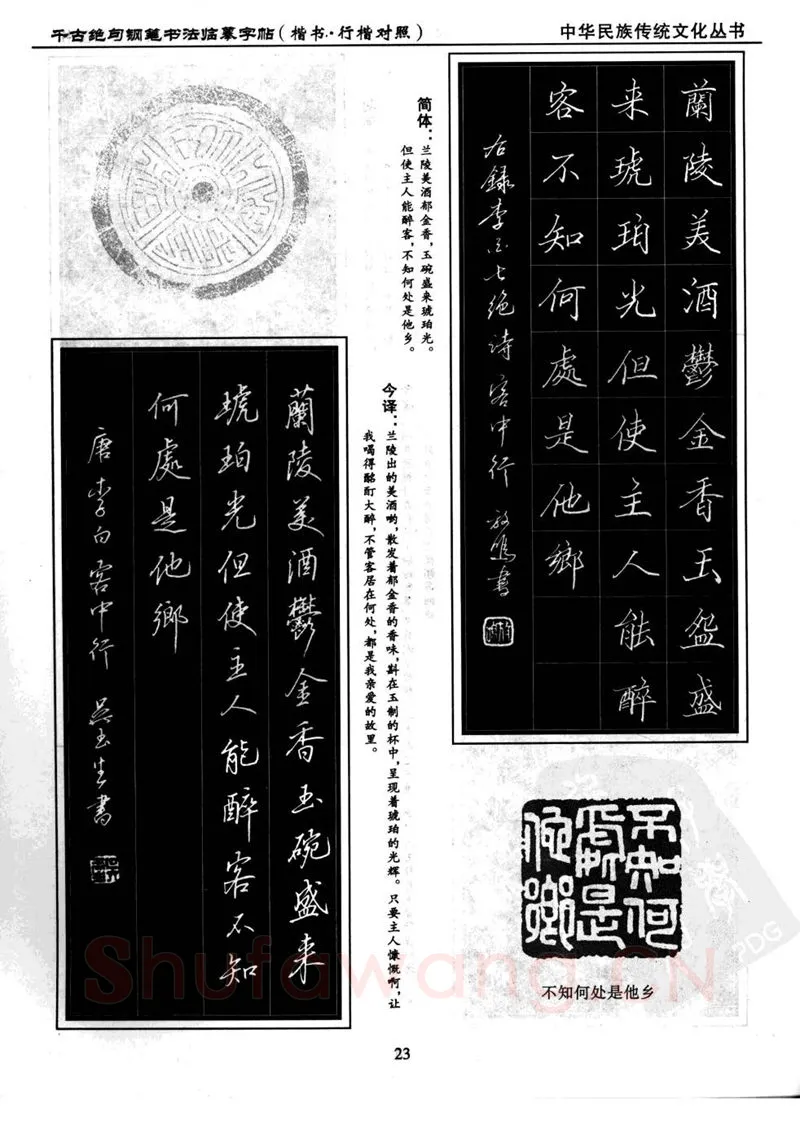 千古绝句钢笔书法临摹字帖(楷书·行楷对照)
中华民族传统文化丛书
蘭陵美酒鬱金香玉盌盛
来琥珀光但使主人能醉
客不知何處是他鄉
右録李白七绝诗客中行 書
简体:兰陵美酒郁金香,玉碗盛来琥珀光。
但使主人能醉客,不知何处是他乡。
今译:兰陵出的美酒哟,散发着郁金香的香味,斟在玉制的杯中,呈现着琥珀的光辉。只要主人慷慨啊,让
我喝得酩酊大醉,不管客居在何处,都是我亲爱的故里。
蘭陵美酒鬱金香玉碗盛来
琥珀光但使主人能醉客不知
何處是他鄉
唐李白客中行 吴玉生書
不知何
處是
他鄉
不知何处是他乡
Shufawang.CN
PDG
23